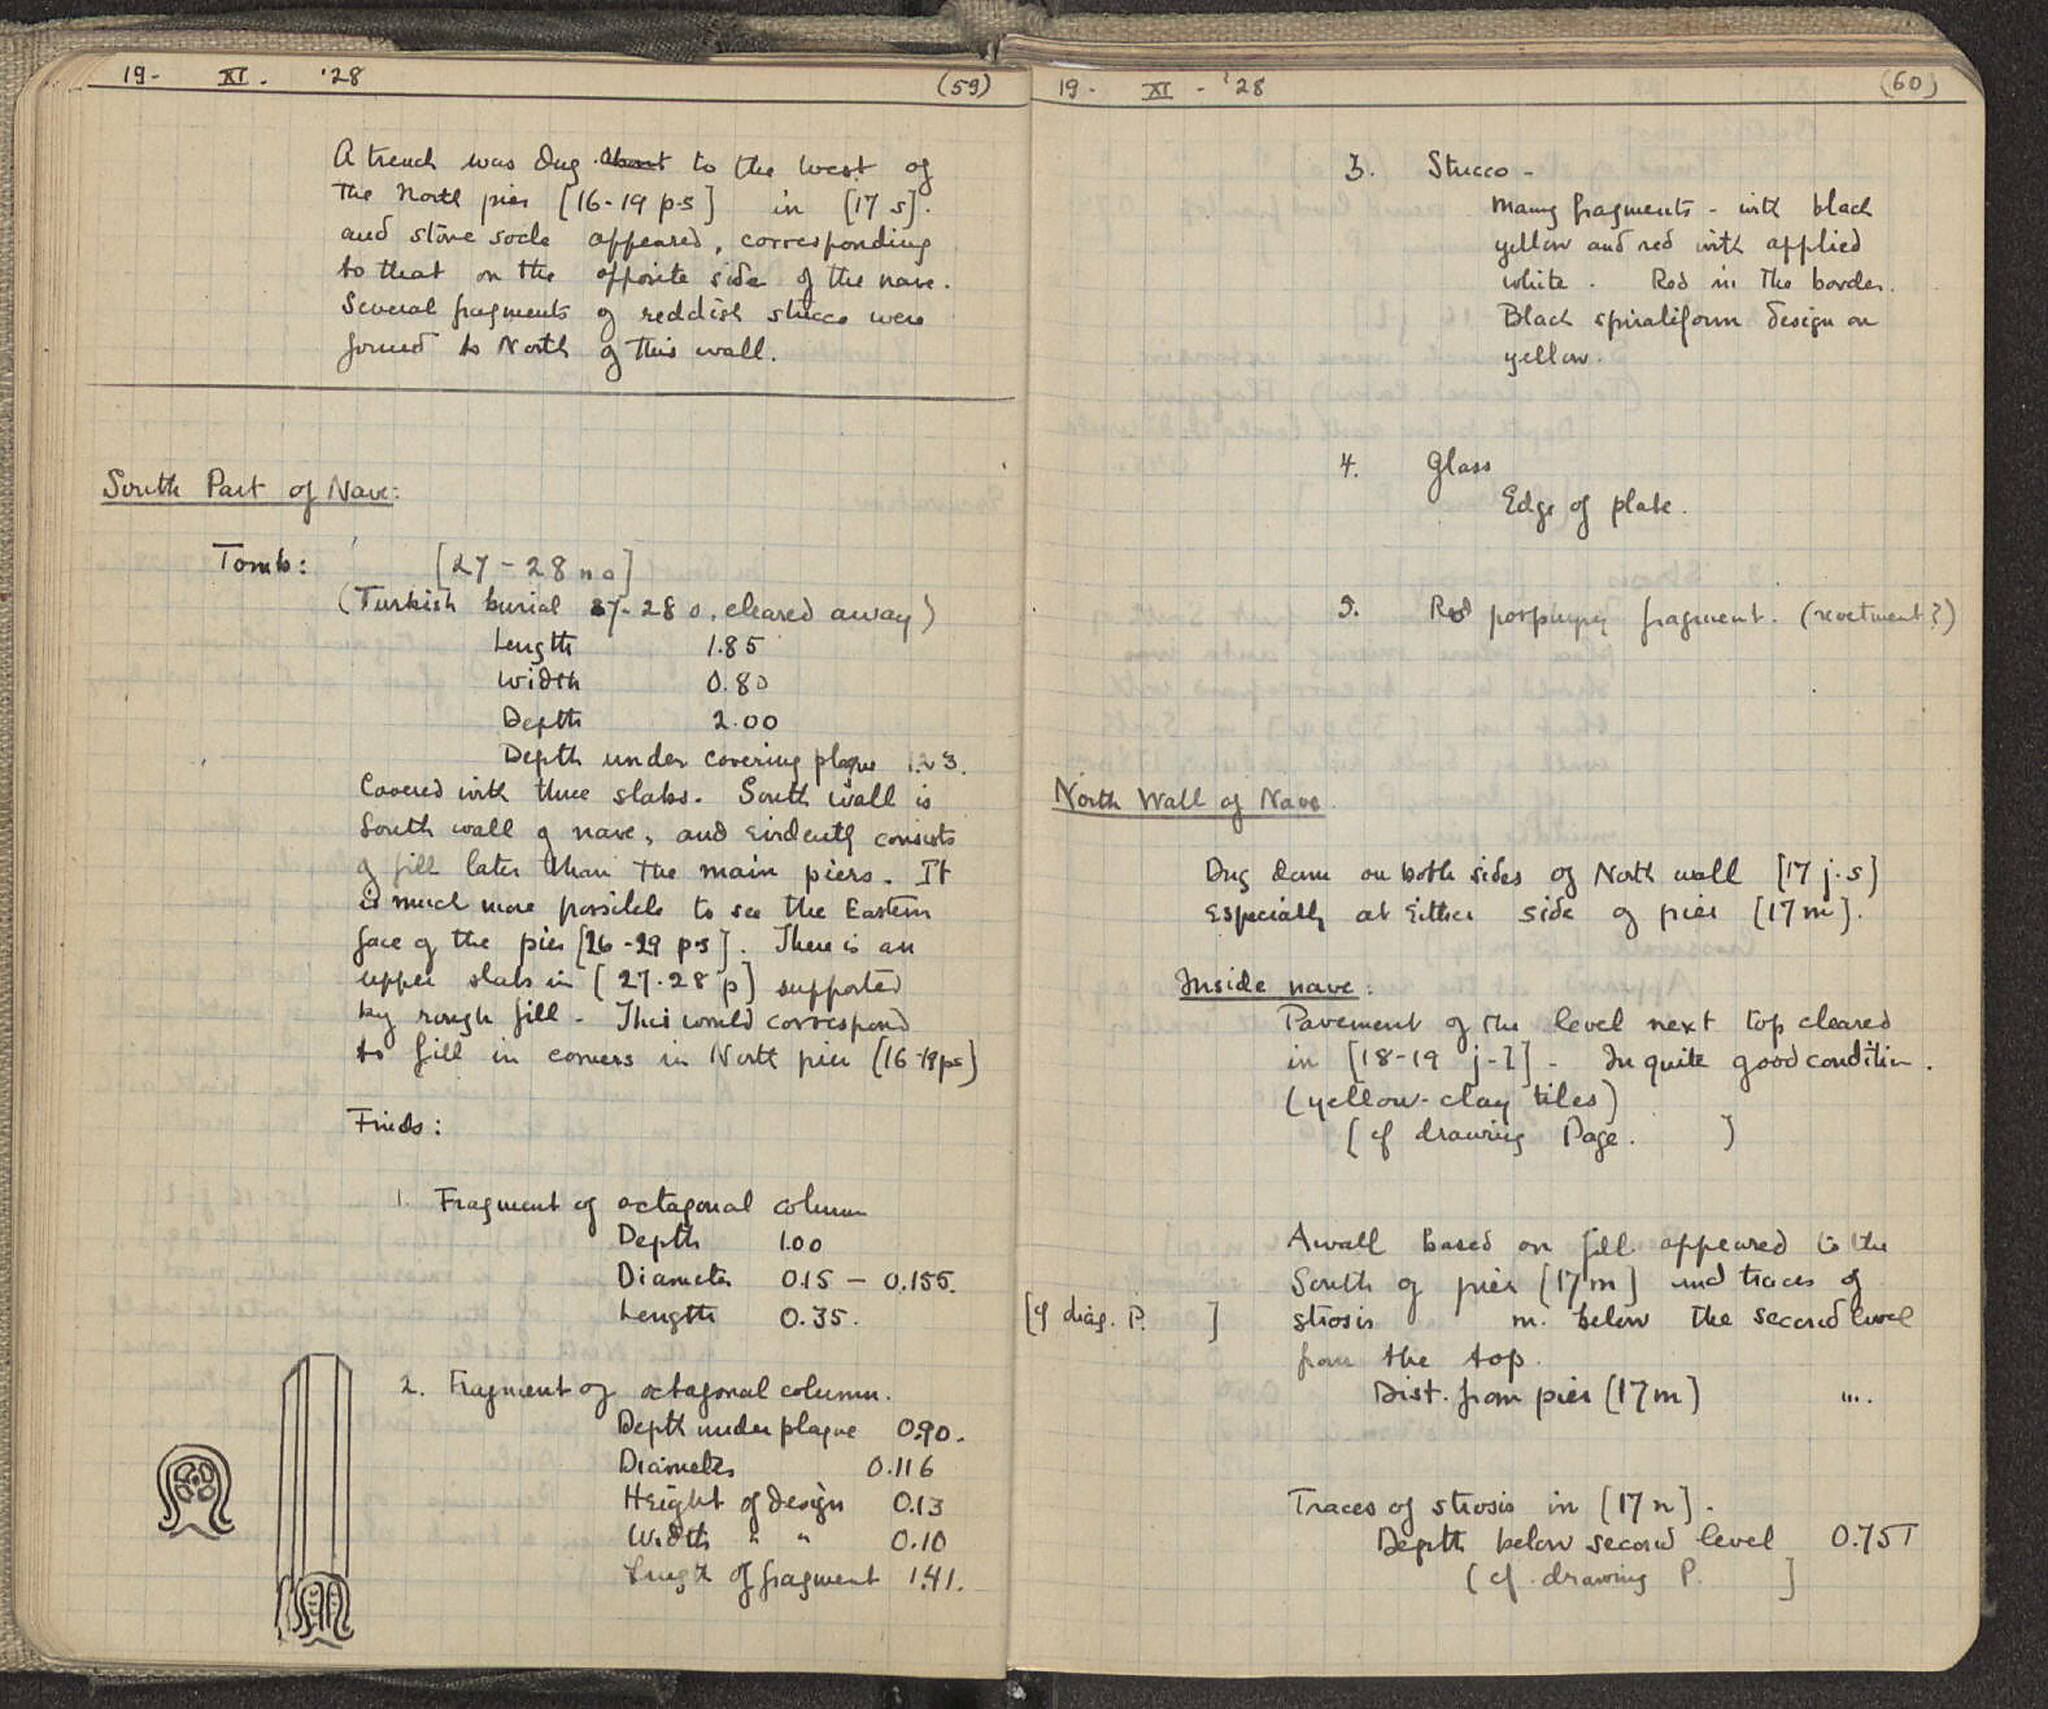 19- XI. '28 (59)
A trench was dug about to the west of
the North pier [16-19 p-s] in [17 s].
and stone socle appeared, corresponding
to that on the opposite side of the nave.
Several fragments of reddish stucco were
found to North of this wall.
South Part of Nave:
Tomb: [27-28 n o]
(Turkish burial 27-28 o, cleared away)
Length 1.85
Width 0.80
Depth 2.00
Depth under covering plaque 1.23.
Covered with three slabs. South wall is
South wall of nave, and evidently consists
of fill later than the main piers. It
is much more possible to see the Eastern
face of the pier [26-29 p-s]. There is an
upper slab in [27-28 p] supported
by rough fill - This would correspond
to fill in corners in North pier [16-19 ps]
Finds:
1. Fragment of octagonal column
Depth 1.00
Diameter 0.15 - 0.155.
Length 0.35.
2. Fragment of octagonal column.
Depth under plaque 0.90.
Diameter 0.116
Height of design 0.13
Width " " 0.10
Length of fragment 1.41.
19- XI - '28 (60)
3. Stucco -
Many fragments - with black
yellow and red with applied
white. Red in the border.
Black spiraliform design on
yellow.
4. Glass
Edge of plate.
5. Red porphyry fragment. (revetment?)
North Wall of Nave.
Dug down on both sides of North wall [17 j-s]
especially at either side of pier [17 m].
Inside nave:
Pavement of the level next top cleared
in [18-19 j-l] - In quite good condition.
(yellow-clay tiles)
[cf drawing Page. ]
A wall based on fill appeared to the
South of pier [17 m] and traces of
[cf diag. P. ] strosis m. below the second level
from the top.
Dist. from pier [17 m] "".
Traces of strosis in [17 n].
Depth below second level 0.75
(cf. drawing P. ]